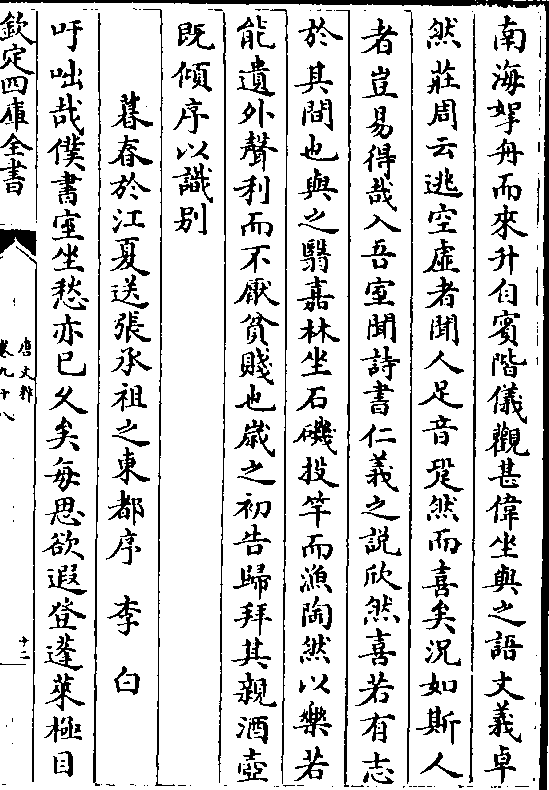 南海拏舟而來升自賓階儀觀甚偉坐與之語文義卓
然莊周云逃空虛者聞人足音跫然而喜矣況如斯人
者豈易得哉入吾室聞詩書仁義之說欣然喜若有志
於其間也與之翳嘉林坐石磯投竿而漁陶然以樂若
能遺外聲利而不厭貧賤也歲之初吿歸拜其親酒壺
既傾序以識别
暮春於江夏送張承祖之東都序 李白
吁咄哉僕書室坐愁亦已久矣每思欲遐登蓬萊極目
欽定四庫全書
唐文粹
卷九十八
十二